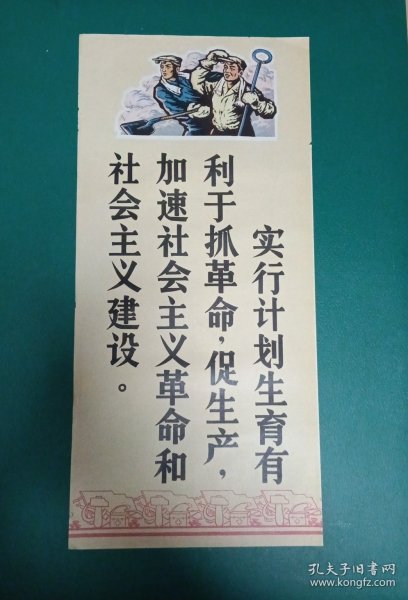 实行计划生育有
利于抓革命，促生产，
加速社会主义革命和
社会主义建设。
孔夫子旧书网
www.kongfz.com